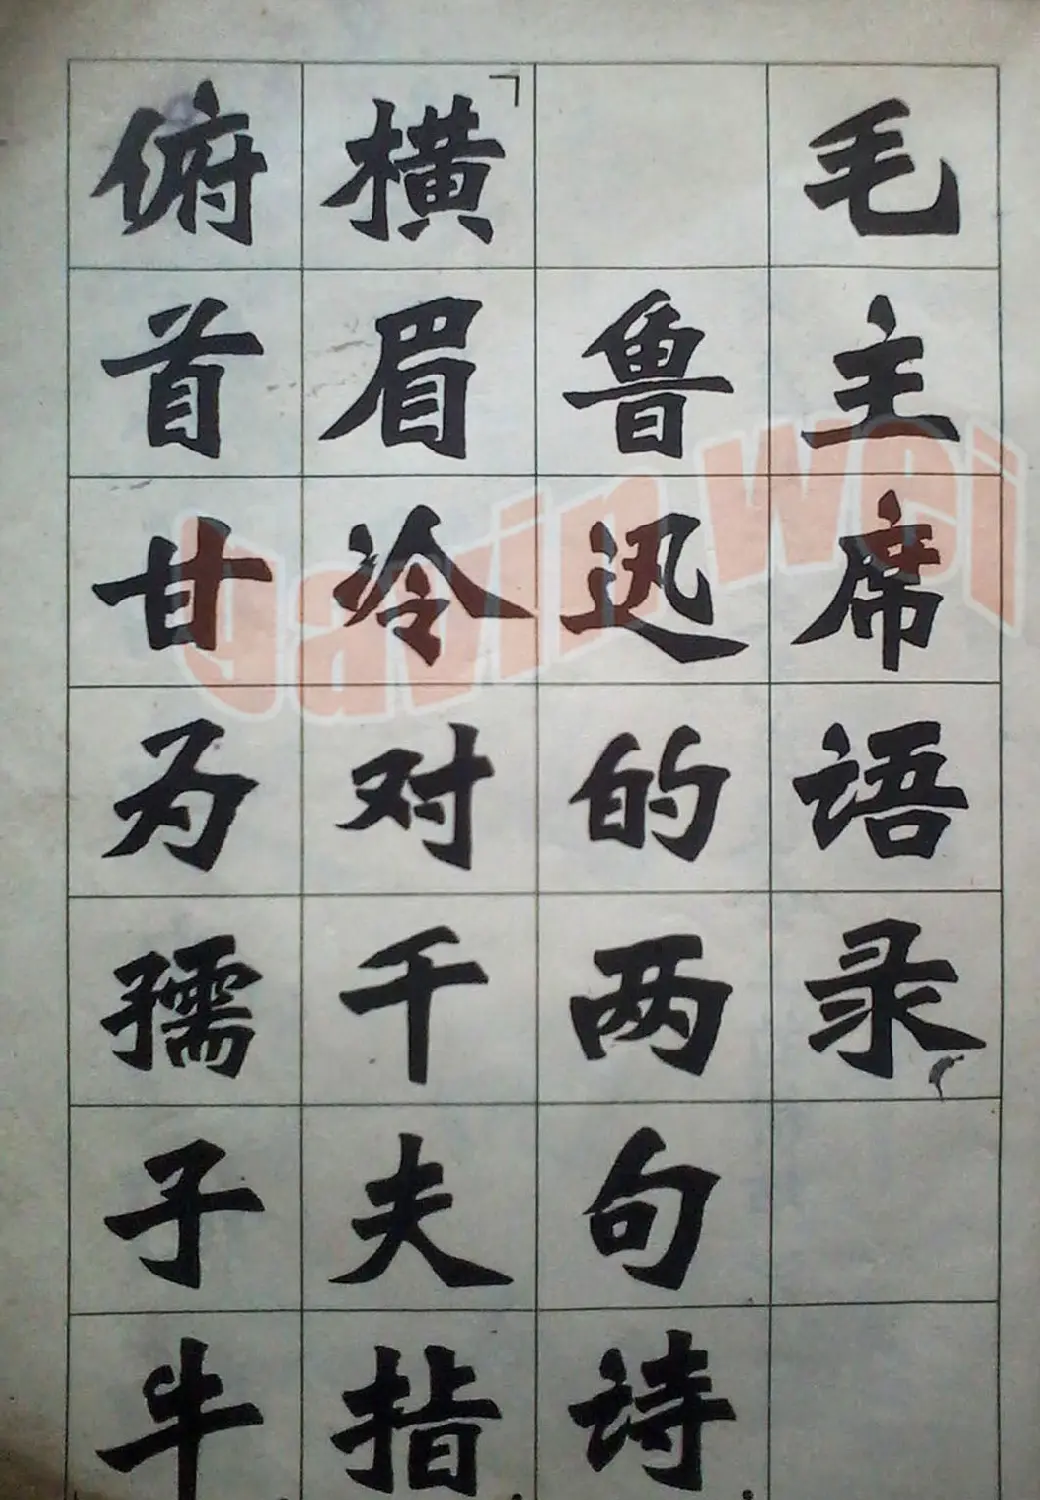 毛主席语录
鲁迅的两句诗，
「横眉冷对千夫指，
俯首甘为孺子牛
gavin wei